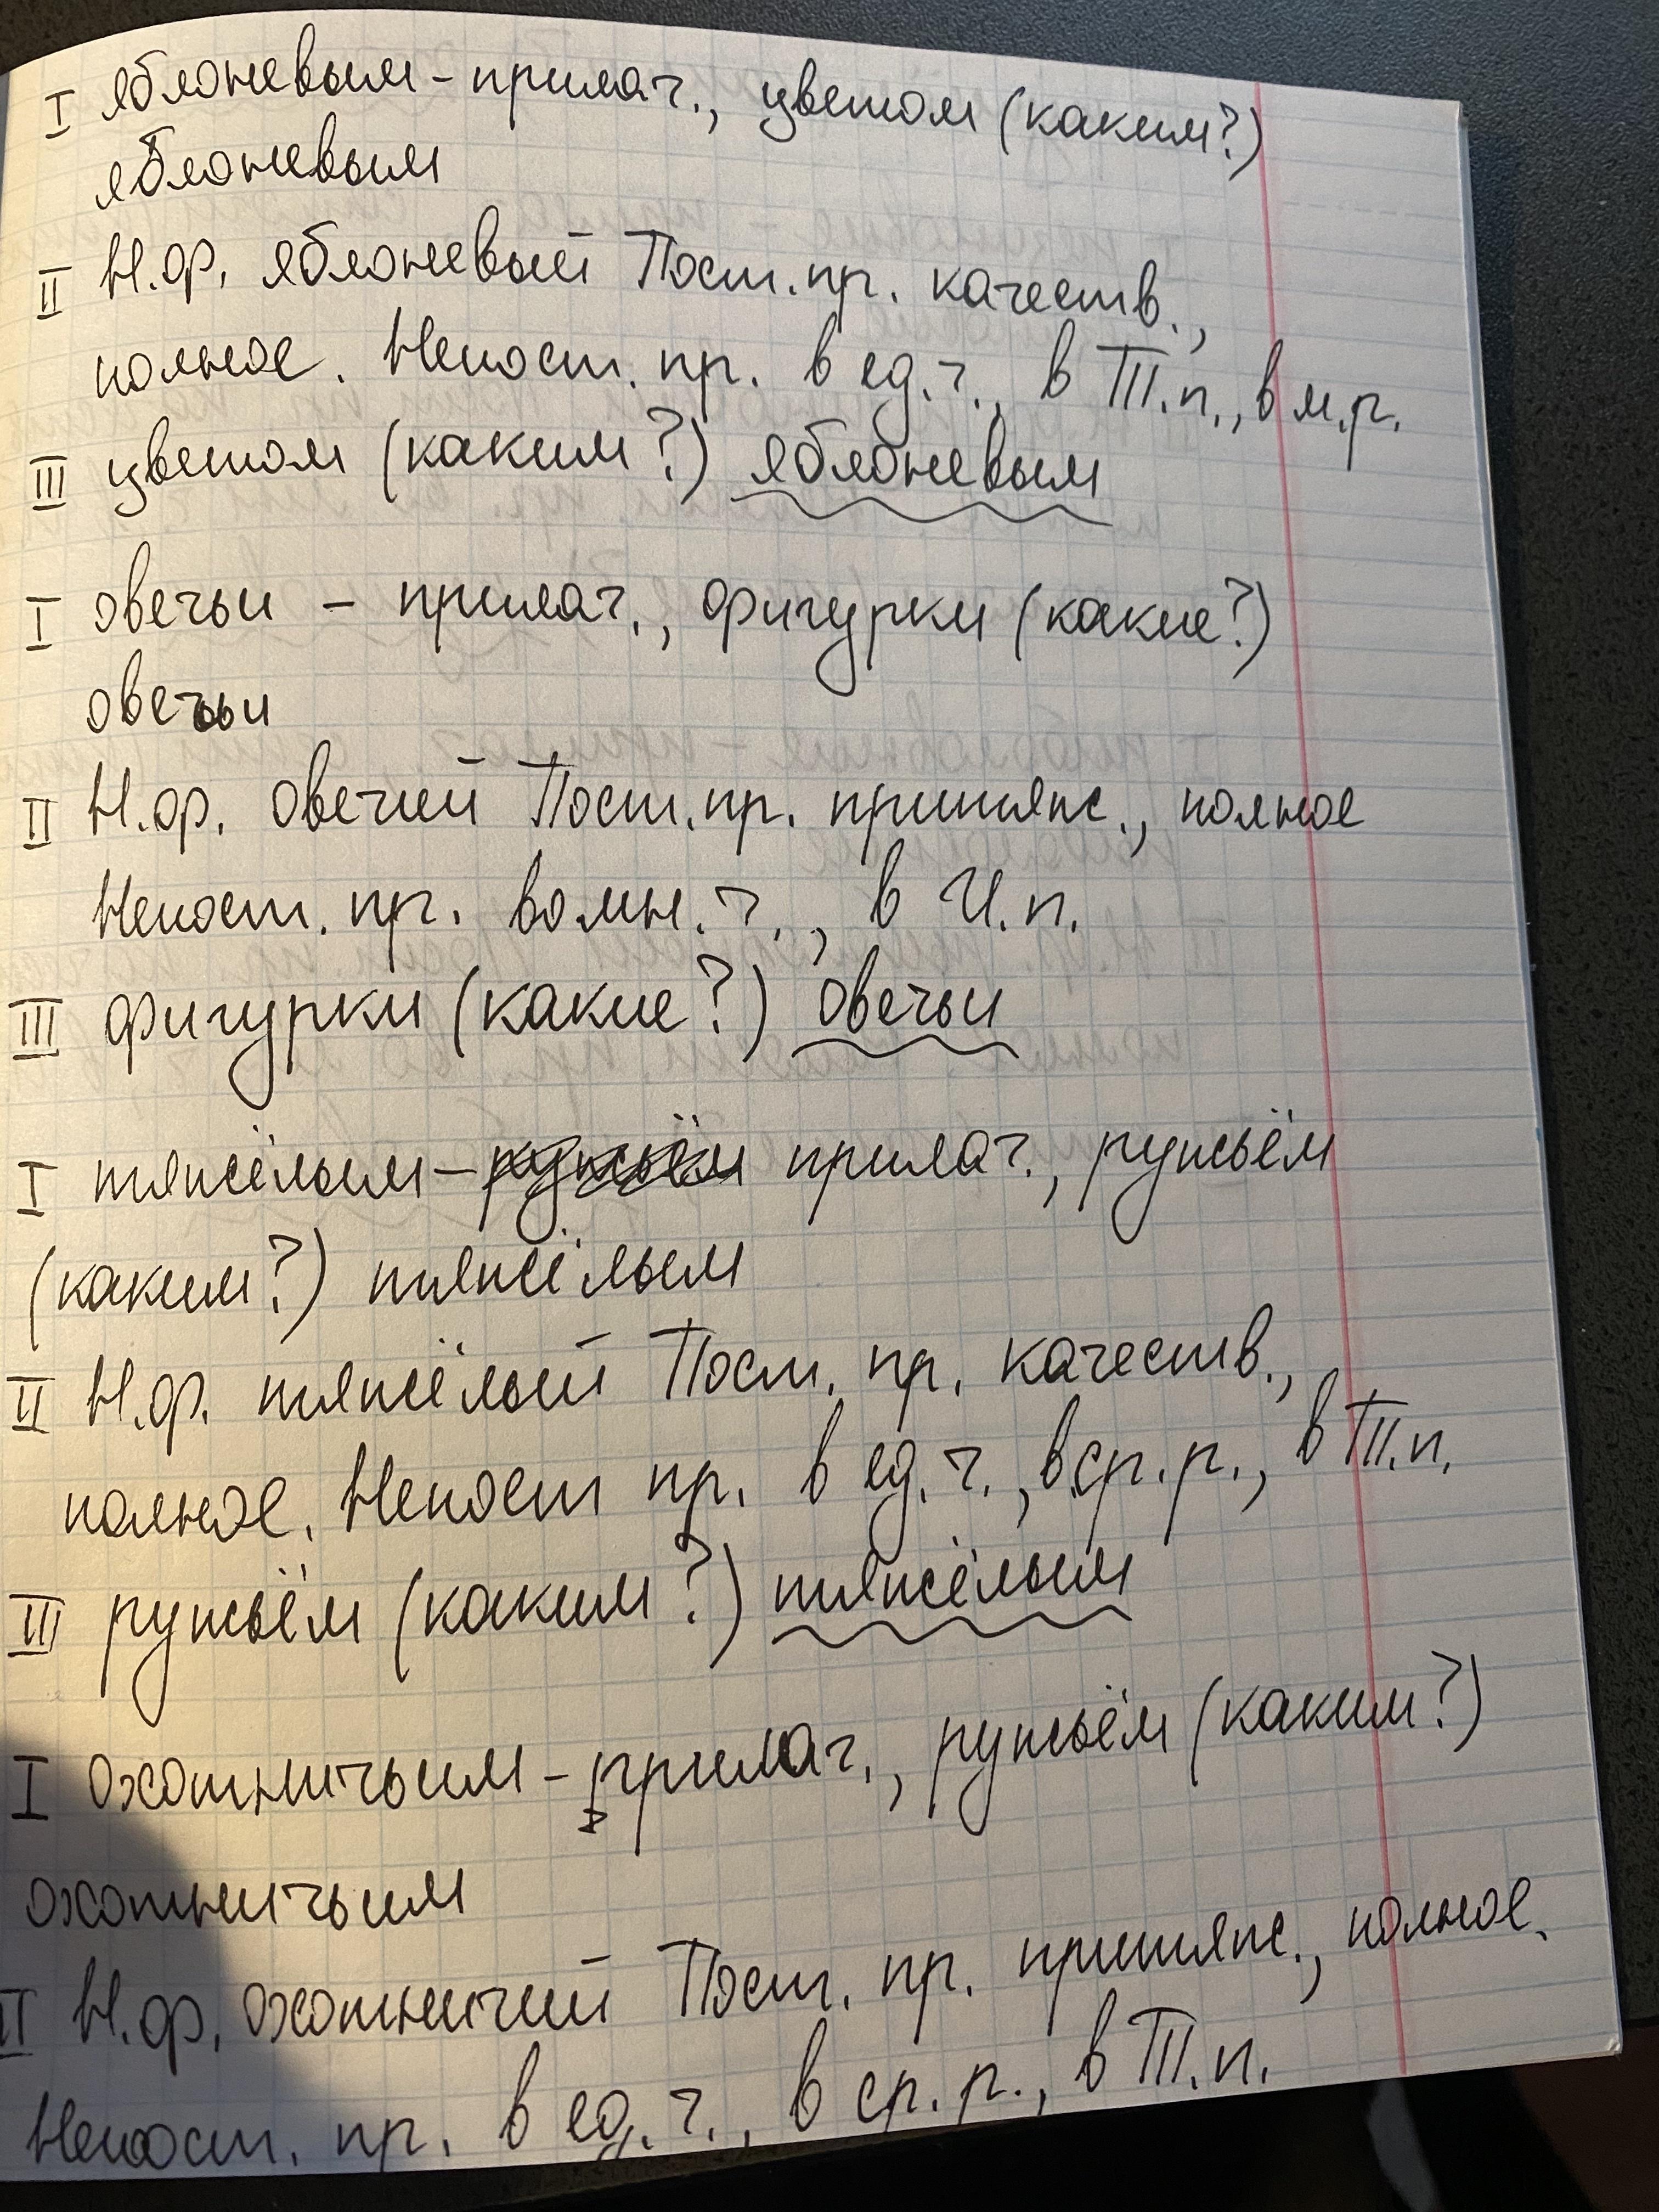 I яблоневым - прилаг., цветом (каким?)
яблоневым
II Н.ф. яблоневый Пост. пр. качеств.,
полное. Непост. пр. в ед. ч., в Т.п., в м.р.
III цветом (каким?) яблоневым
I овечьи - прилаг., фигурки (какие?)
овечьи
II Н.ф. овечий Пост. пр. притяж., полное
Непост. пр. во мн. ч., в И.п.
III фигурки (какие?) овечьи
I тяжёлым - ружьём прилаг., ружьём
(каким?) тяжёлым
II Н.ф. тяжёлый Пост. пр. качеств.,
полное. Непост пр. в ед. ч., в ср. р., в Т.п.
III ружьём (каким?) тяжёлым
I охотничьим - прилаг., ружьём (каким?)
охотничьим
II Н.ф. охотничий Пост. пр. притяж., полное.
Непост. пр. в ед. ч., в ср. р., в Т.п.